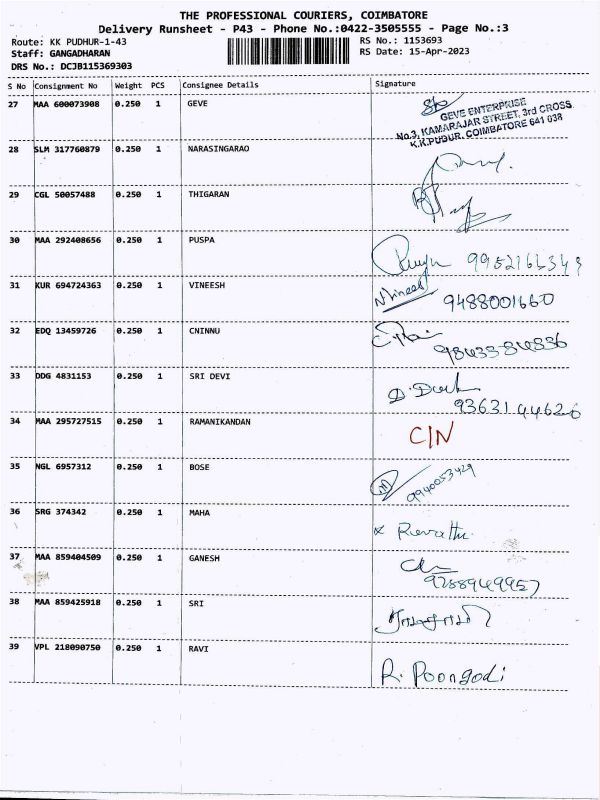 THE PROFESSIONAL COURIERS, COIMBATORE
Delivery Runsheet - P43 - Phone No.:0422-3505555 - Page No.:3
Route: KK PUDHUR-1-43 RS No.: 1153693
Staff: GANGADHARAN RS Date: 15-Apr-2023
DRS No.: DCJB115369303
S No Consignment No Weight PCS Consignee Details Signature
27 MAA 600073908 0.250 1 GEVE
GEVE ENTERPRISE
No.3, KAMARAJAR STREET, 3rd CROSS
K.K.PUDUR, COIMBATORE 641 038
28 SLM 317760879 0.250 1 NARASINGARAO
29 CGL 50057488 0.250 1 THIGARAN
30 MAA 292408656 0.250 1 PUSPA
31 KUR 694724363 0.250 1 VINEESH Vineesh
9488001660
32 EDQ 13459726 0.250 1 CNINNU
33 DDG 4831153 0.250 1 SRI DEVI
93631 44626
34 MAA 295727515 0.250 1 RAMANIKANDAN C/N
35 NGL 6957312 0.250 1 BOSE
9940053429
36 SRG 374342 0.250 1 MAHA Revathi
37 MAA 859404509 0.250 1 GANESH
9788949957
38 MAA 859425918 0.250 1 SRI
39 VPL 218090750 0.250 1 RAVI R. Poongodi